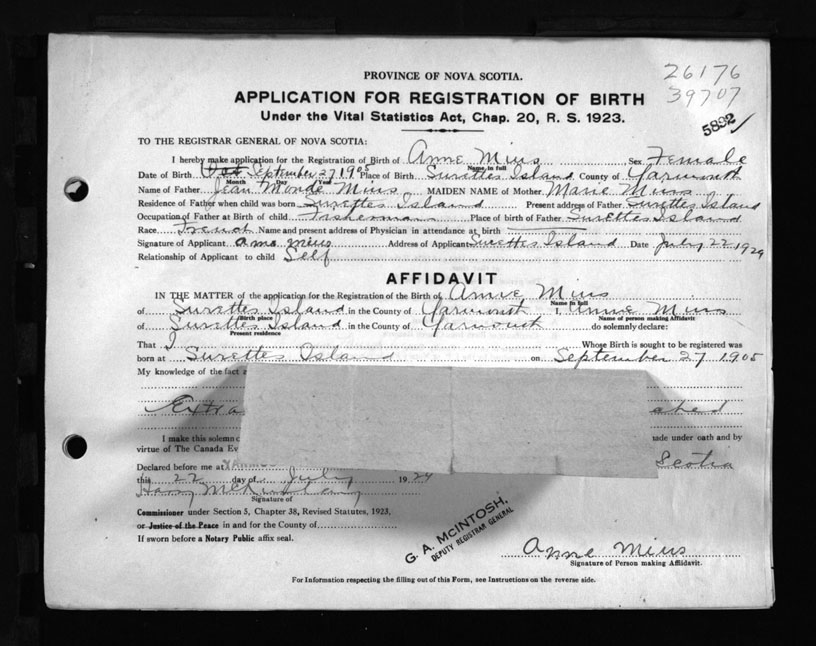 26176
39707
5892
PROVINCE OF NOVA SCOTIA.
APPLICATION FOR REGISTRATION OF BIRTH
Under the Vital Statistics Act, Chap. 20, R. S. 1923.
TO THE REGISTRAR GENERAL OF NOVA SCOTIA:
I hereby make application for the Registration of Birth of Anne Mius Sex Female
Name in full
Date of Birth September 27 1905 Place of Birth Surettes Island County of Yarmouth
Month Day Year
Name of Father Jean Monde Mius MAIDEN NAME of Mother Marie Mius
Residence of Father when child was born Surettes Island Present address of Father Surettes Island
Occupation of Father at Birth of child Fisherman Place of birth of Father Surettes Island
Race French Name and present address of Physician in attendance at birth
Signature of Applicant Anne Mius Address of Applicant Surettes Island Date July 22 1929
Relationship of Applicant to child Self
AFFIDAVIT
IN THE MATTER of the application for the Registration of the Birth of Annie Mius
Name in full
of Surettes Island in the County of Yarmouth I, Annie Mius
Birth place Name of person making Affidavit
of Surettes Island in the County of Yarmouth do solemnly declare:
Present residence
That I Whose Birth is sought to be registered was
born at Surettes Island on September 27 1905
My knowledge of the fact a
Extra
I make this solemn c ade under oath and by
virtue of The Canada Ev Scotia
Declared before me at
this 22 day of July 1929
Signature of
Commissioner under Section 5, Chapter 38, Revised Statutes, 1923,
or Justice of the Peace in and for the County of
If sworn before a Notary Public affix seal.
G. A. McINTOSH,
DEPUTY REGISTRAR GENERAL
Anne Mius
Signature of Person making Affidavit.
For Information respecting the filling out of this Form, see Instructions on the reverse side.